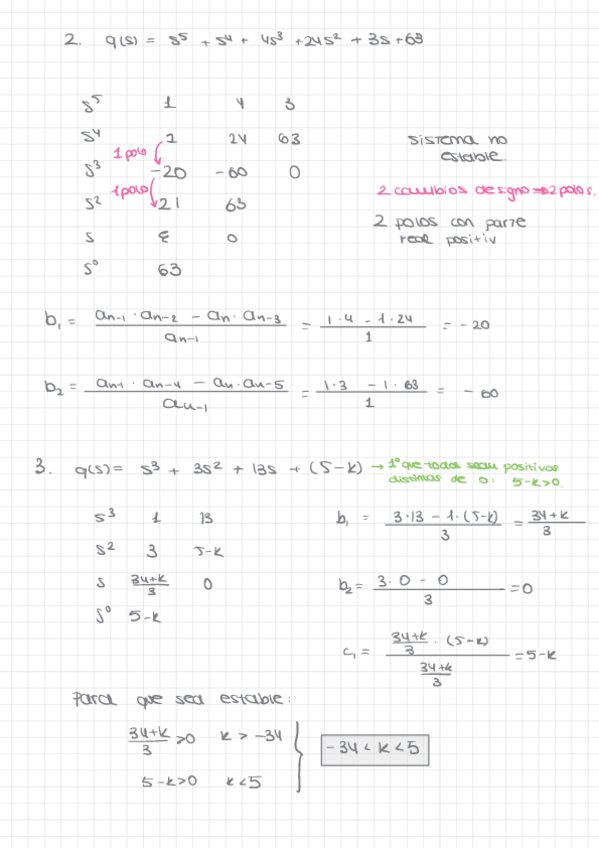 2. q(s) = s⁵ + s⁴ + 4s³ + 24s² + 3s + 63
s⁵ 1 4 3
s⁴ 1 24 63
1 polo
s³ -20 -60 0
1 polo
s² 21 63
s ε 0
s⁰ 63
sistema no
estable.
2 cambios de signo ⇒ 2 polos.
2 polos con parte
real positiv
b₁ = (aₙ₋₁ · aₙ₋₂ - aₙ · aₙ₋₃) / aₙ₋₁ = (1·4 - 1·24) / 1 = -20
b₂ = (aₙ₋₁ · aₙ₋₄ - aₙ · aₙ₋₅) / aₙ₋₁ = (1·3 - 1·63) / 1 = -60
3. q(s) = s³ + 3s² + 13s + (5-k) → 1º que todos sean positivos
distintas de 0: 5-k>0.
s³ 1 13
s² 3 5-k
s (34+k)/3 0
s⁰ 5-k
b₁ = (3·13 - 1·(5-k)) / 3 = (34+k)/3
b₂ = (3·0 - 0) / 3 = 0
c₁ = ((34+k)/3 · (5-k)) / ((34+k)/3) = 5-k
Para que sea estable:
(34+k)/3 > 0 k > -34
5-k>0 k<5
-34 < k < 5